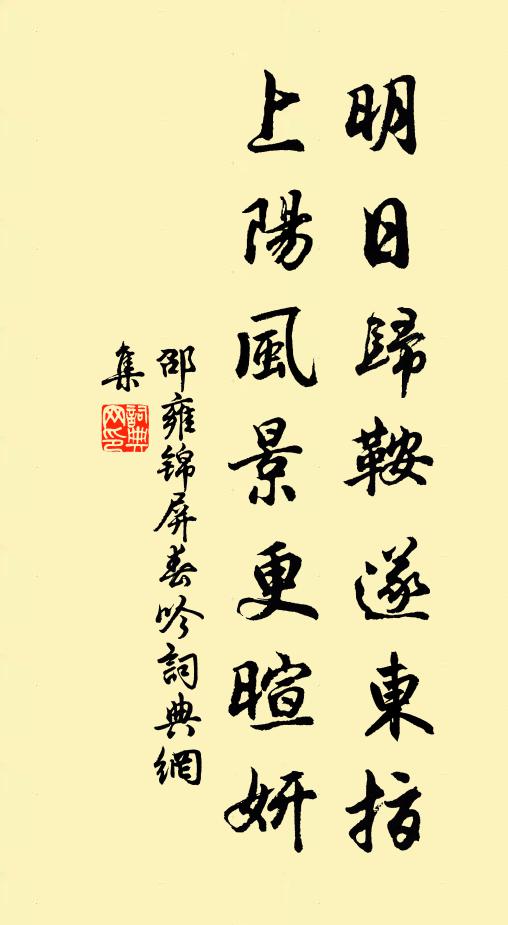 明日歸鞍遂東指
上陽風景更暄妍
邵雍錦屏春吟詞典網
集
詞典
网印